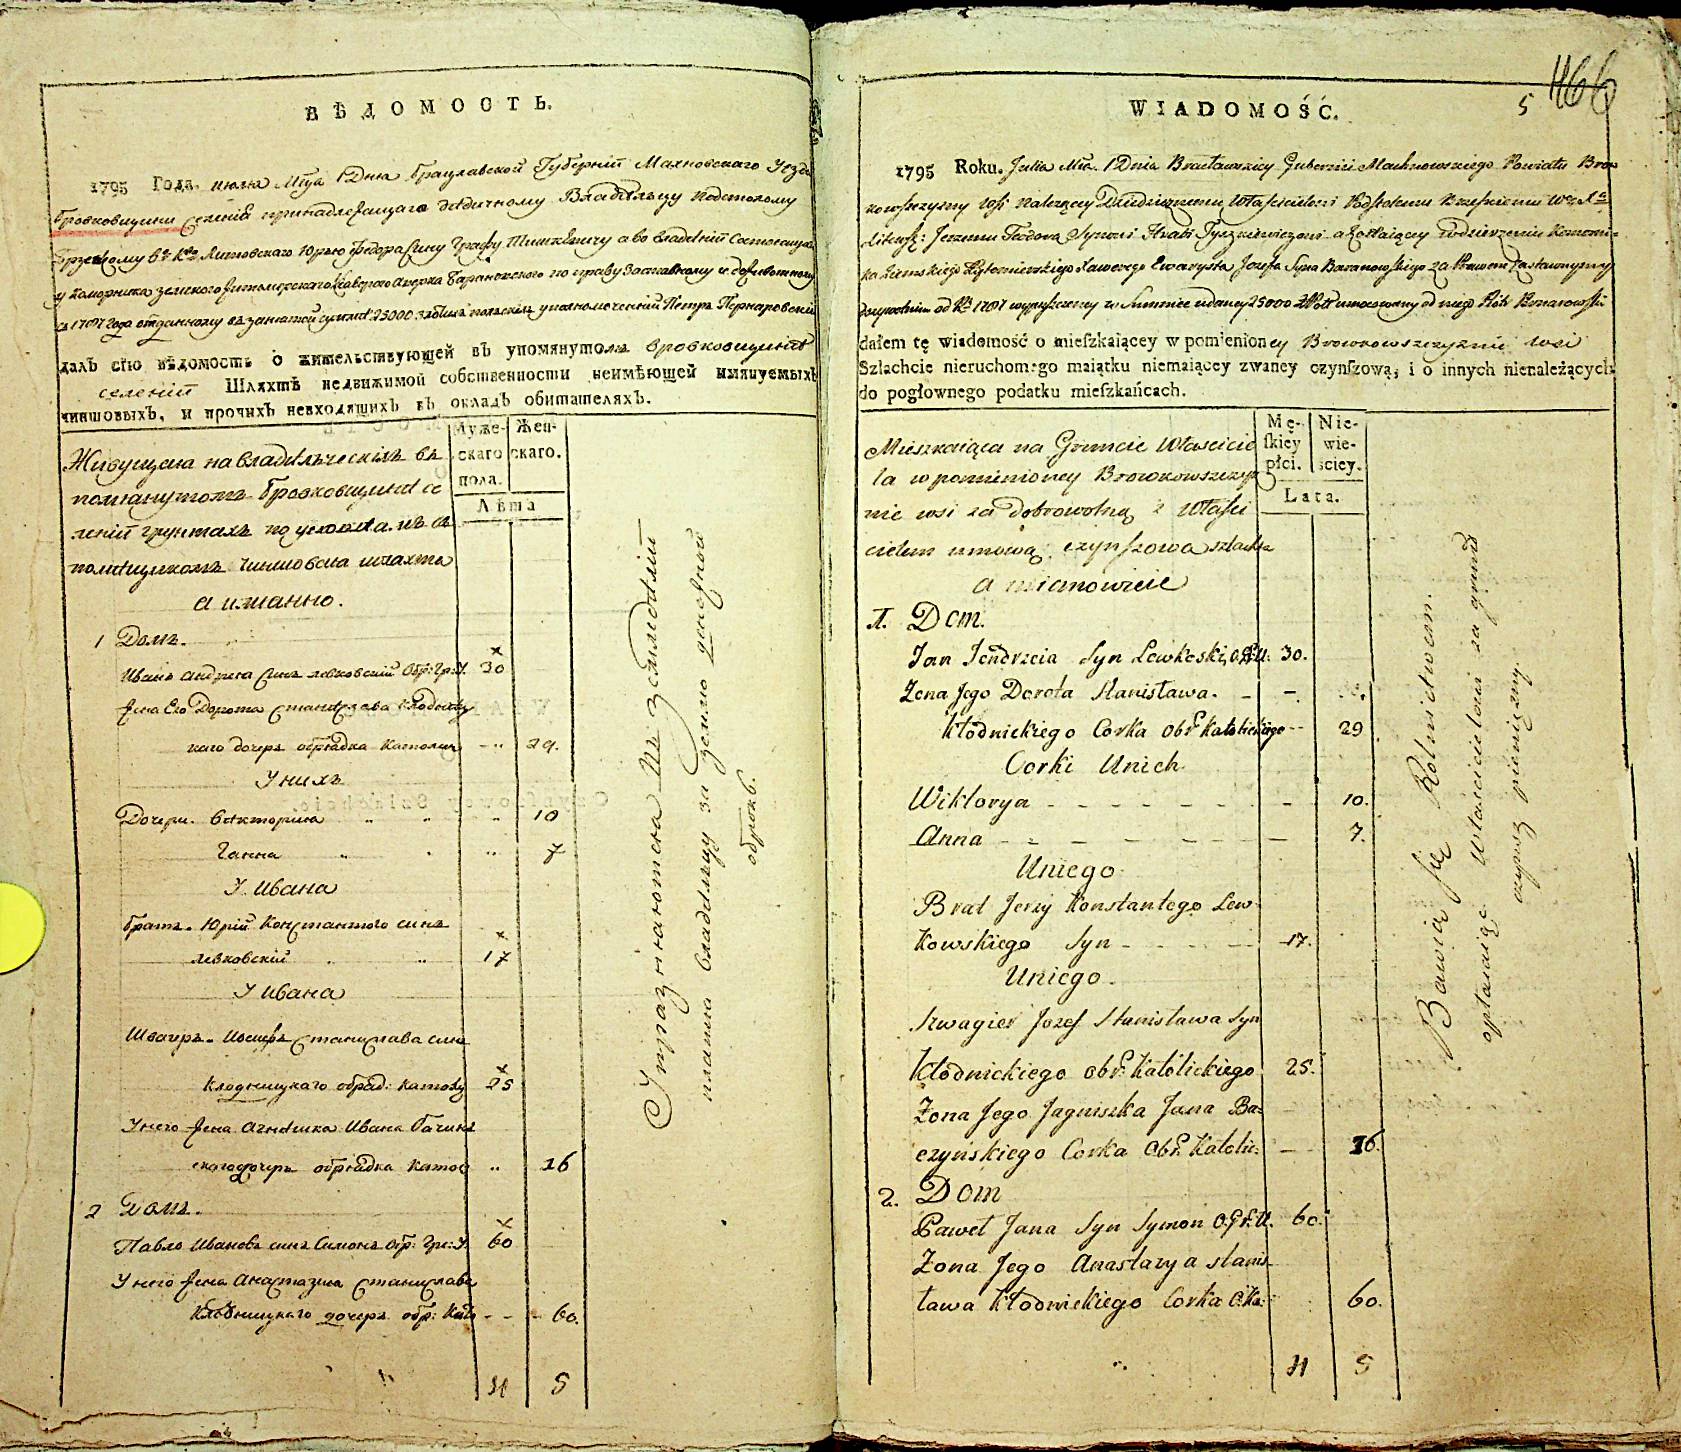 ВѢДОМОСТЬ.
1795 Года. июля Мца 1 Дня Брацлавской Губерніи Махновскаго Уезда
Бровковщини Селенія принадлежащаго дѣдичному Владѣльцу подстолому
Литовскаго Юрью Федора Сину Графу Тишкѣвичу а во владѣніи состоящаго
у Каморника земского Житомирского Барановского по праву заставному и
съ 1787 года отданному въ суммѣ 25000 злотихъ польскихъ уполномоченній Петръ
далъ сію вѣдомость о жительствующей въ упомянутомъ Бровковщинѣ
селеніи Шляхтѣ недвижимой собственности неимѣющей имянуемыхъ
чиншовыхъ, и прочихъ невходящихъ въ окладъ обитателяхъ.
Муже- Жен-
скаго скаго.
пола.
Лѣта
Живущая на владѣлческихъ въ
помянутомъ Бровковщинѣ се
леніи грунтахъ по условіа. съ
помѣщикомъ чиншовая шляхта
а имянно.
1 Домъ.
Иванъ Андрея Синъ Левковскій Обр: Гр: У. 30
жена Его Дорота Станислава Клодниц
каго дочерь обрядка католиц 29.
У нихъ
Дочери. Викториа 10
Ганна 7
У Ивана
братъ. Юрій Константого синъ
левковскій 17
У Ивана
Швагръ. Иосифъ Станислава синъ
Клодницкаго обряд: католиц 25
У него жена Агнѣшка Ивана Бачинъ
скаго дочерь обрядка катол 26
2 Домъ.
Павло Ивановъ синъ Симонъ Обр: Гре: У. 60
У него жена Анастазия Станислава
Клодницкаго дочерь обр: Като 60.
4 5
Упразняются въ земледѣліи
платя владѣльцу за землю денежный
оброкъ.
5 466
WIADOMOŚĆ.
1795 Roku. Julia Mca. 1 Dnia Bracławskiey Gubernii Machnowskiego Powiatu Brow-
kowszczyzny Wsi należącey Dziedzicznemu Właścicielowi Podstolemu
Litewsk: Jerzemu Teodora Synowi Hrabi Tyszkiewiczowi a zostaiącey w dzierżeniu Komorni-
ka Ziemskiego Żytomierskiego Ewarysta Jozefa Syna Baranowskiego za Prawem Zastawnymy
dożywotnim od Rku 1787 w Summie 25000 Złłpol umocowany od niego Piotr
dałem tę wiadomość o mieſzkaiącey w pomienioney Browkowszczyznie wsi
Szlachcie nieruchomego maiątku niemaiącey zwaney czynſzową, i o innych nienależących
do pogłownego podatku mieſzkańcach.
Mę- Nie-
ſkiey wie-
płci. ściey.
Lata.
Mieszkaiąca na Gruncie Właścicie
la w pomienioney Browkowszczyz
nie wsi za dobrowolną z Właści
cielem umową czynszowa szlachta
a mianowicie
1. Dom.
Jan Jendrzeia Syn Lewkoski, O.G.U: 30.
Zona Jego Dorota Stanisława. - -
Kłodnickiego Corka obr. Katolickiego -- 29
Corki Unich
Wiktorya - - - - - - - 10.
Anna - - - - - - - 7.
Uniego
Brat Jerzy Konstantego Lew-
kowskiego Syn - - - - - 17.
Uniego.
Szwagier Jozef Stanisława Syn
Kłodnickiego obr. Katolickiego 25.
Zona Jego Jagniszka Jana Ba-
czyńskiego Corka Obr. Katolic: -- 26.
2. Dom
Paweł Jana Syn Symon O.G.U. 60.
Zona Jego Anastazya Stanis-
ława Kłodnickiego Corka O.Ka: 60.
4 5
Bawią się Rolnictwem.
opłacaiąc Właścicielowi za grunt
czynsz pieniężny.